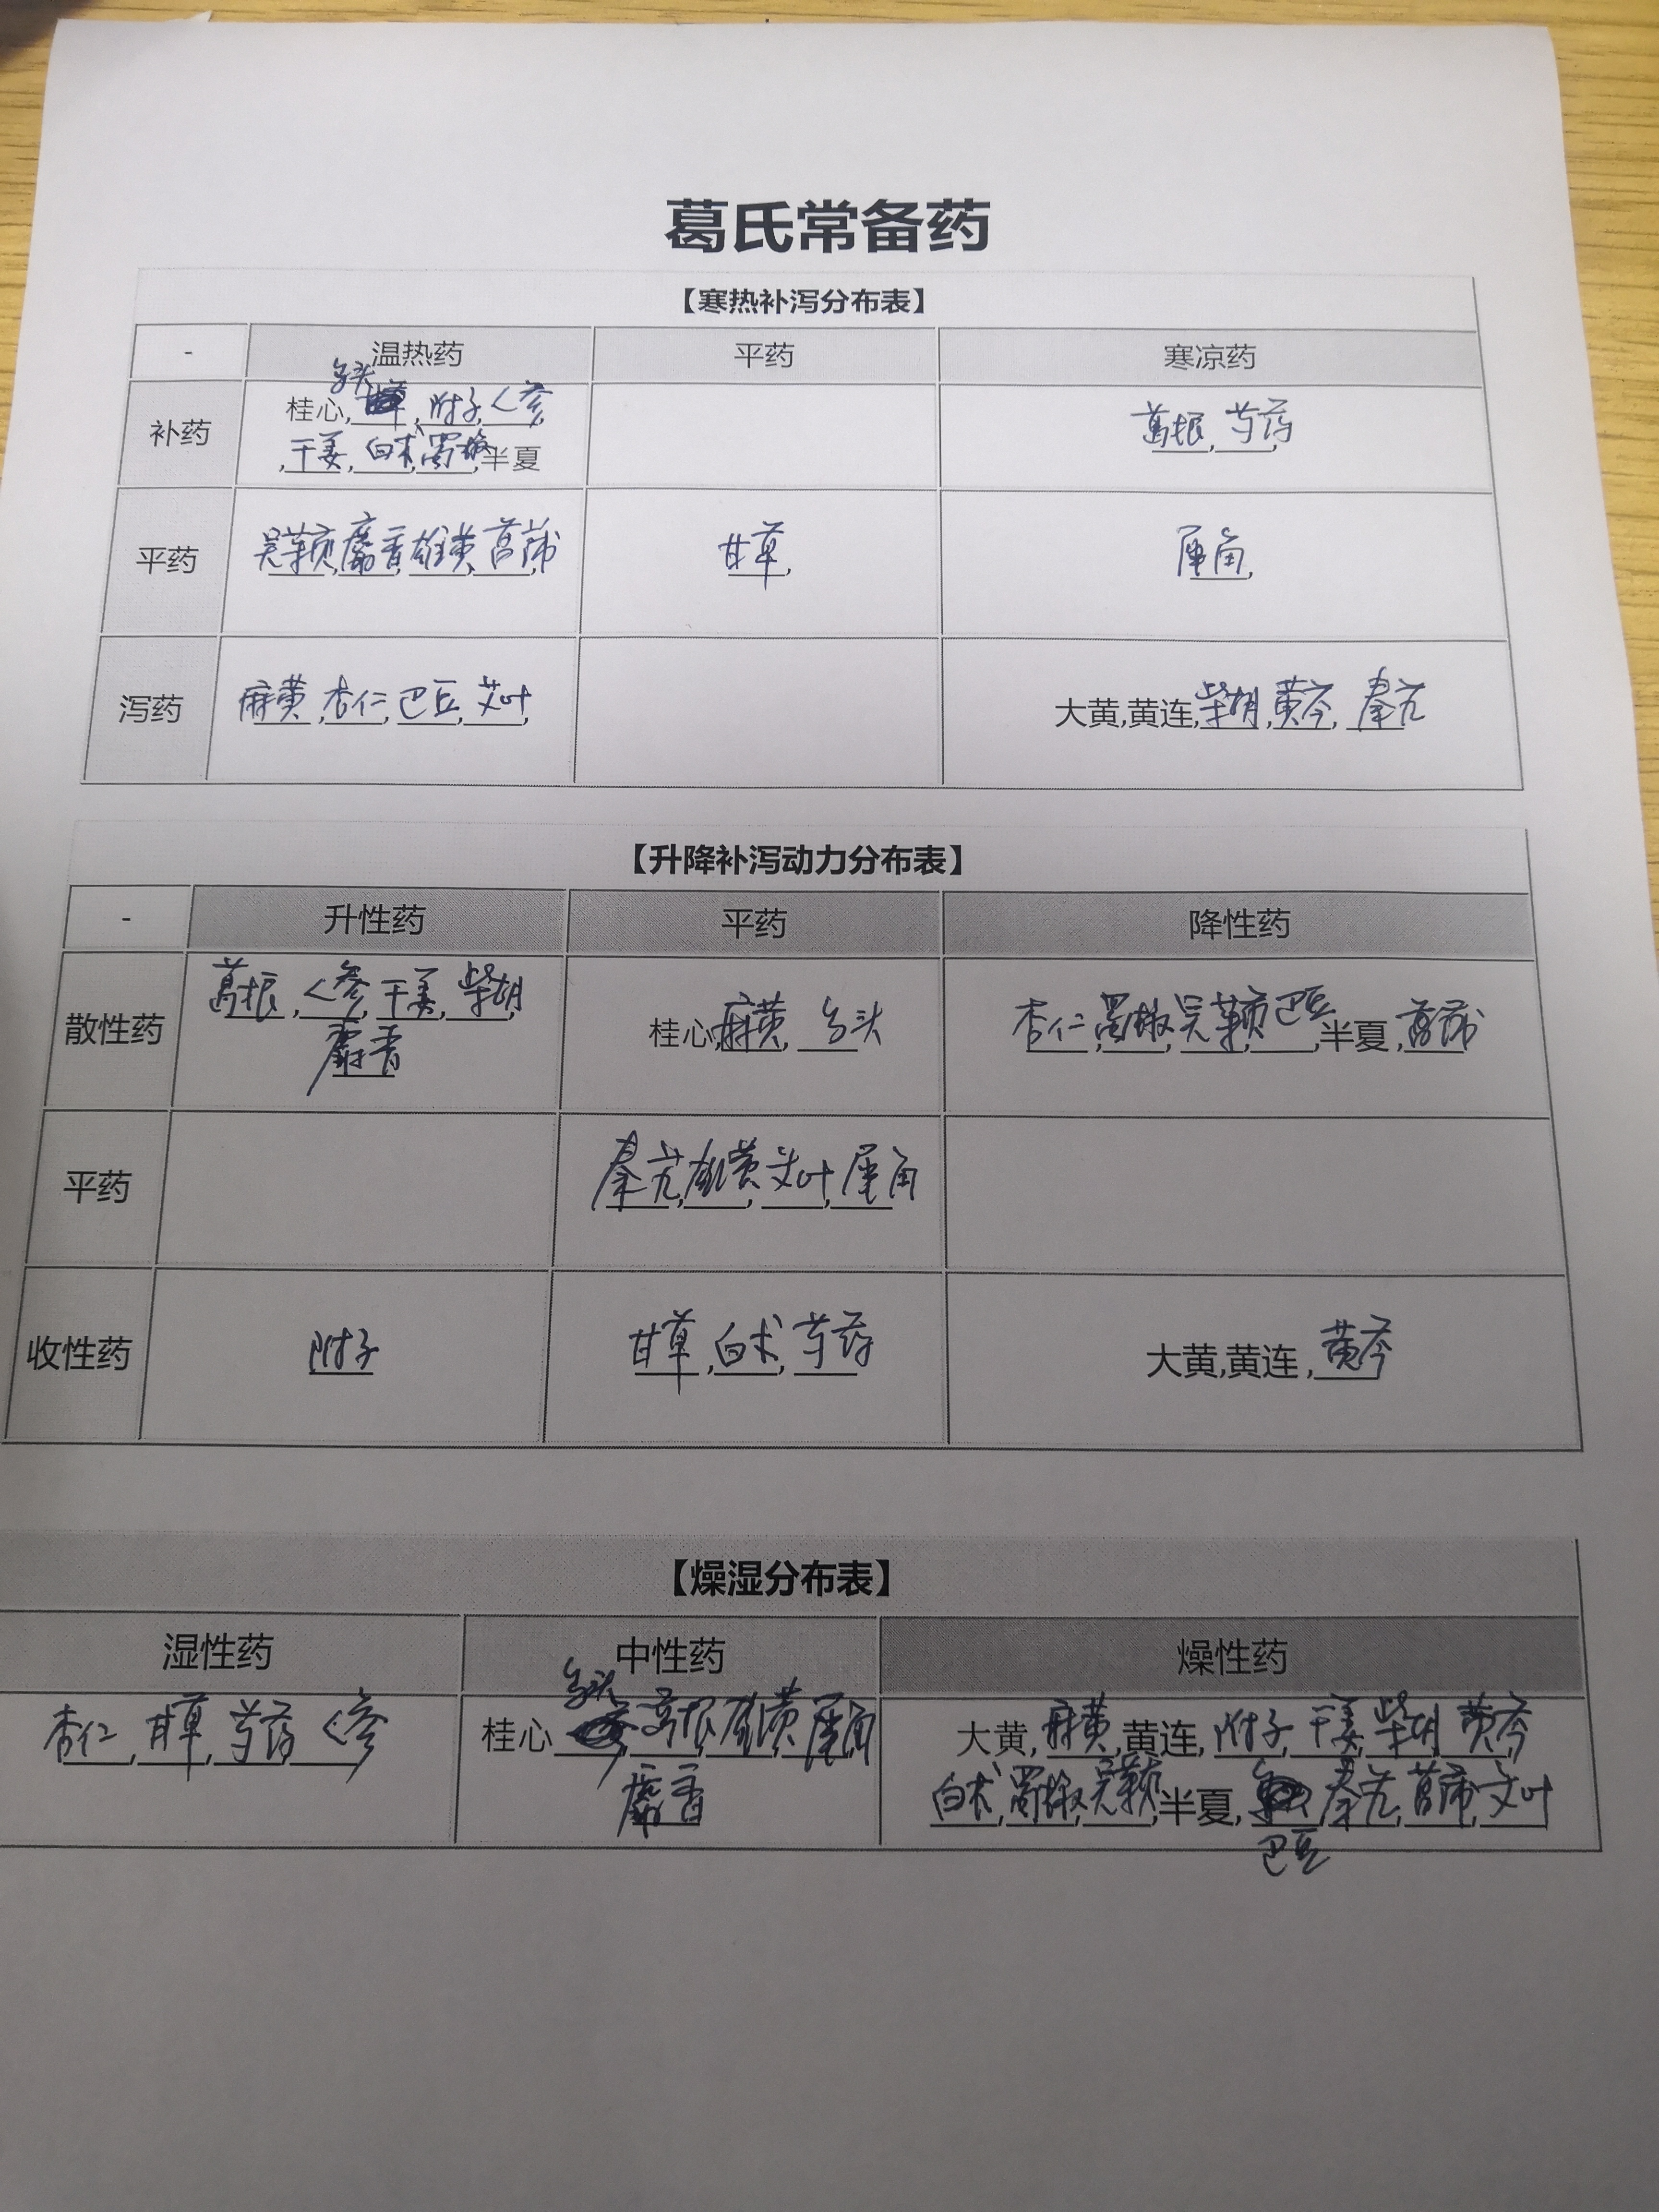 葛氏常备药
【寒热补泻分布表】
- 温热药 平药 寒凉药
乌头
补药 桂心, 附子,人参 葛根,芍药
,干姜,白术,蜀椒,半夏
平药 吴茱萸,麝香,雄黄,菖蒲 甘草, 犀角,
泻药 麻黄,杏仁,巴豆,艾叶, 大黄,黄连,柴胡,黄芩,秦艽
【升降补泻动力分布表】
- 升性药 平药 降性药
散性药 葛根,人参,干姜,柴胡 桂心,麻黄,乌头 杏仁,蜀椒,吴茱萸,巴豆,半夏,菖蒲
麝香
平药 秦艽,雄黄,艾叶,犀角
收性药 附子 甘草,白术,芍药 大黄,黄连,黄芩
【燥湿分布表】
湿性药 中性药 燥性药
乌头
杏仁,甘草,芍药,人参 桂心 ,葛根,雄黄,犀角 大黄,麻黄,黄连,附子,干姜,柴胡,黄芩
麝香 白术,蜀椒,吴茱萸,半夏, 秦艽,菖蒲,艾叶
巴豆